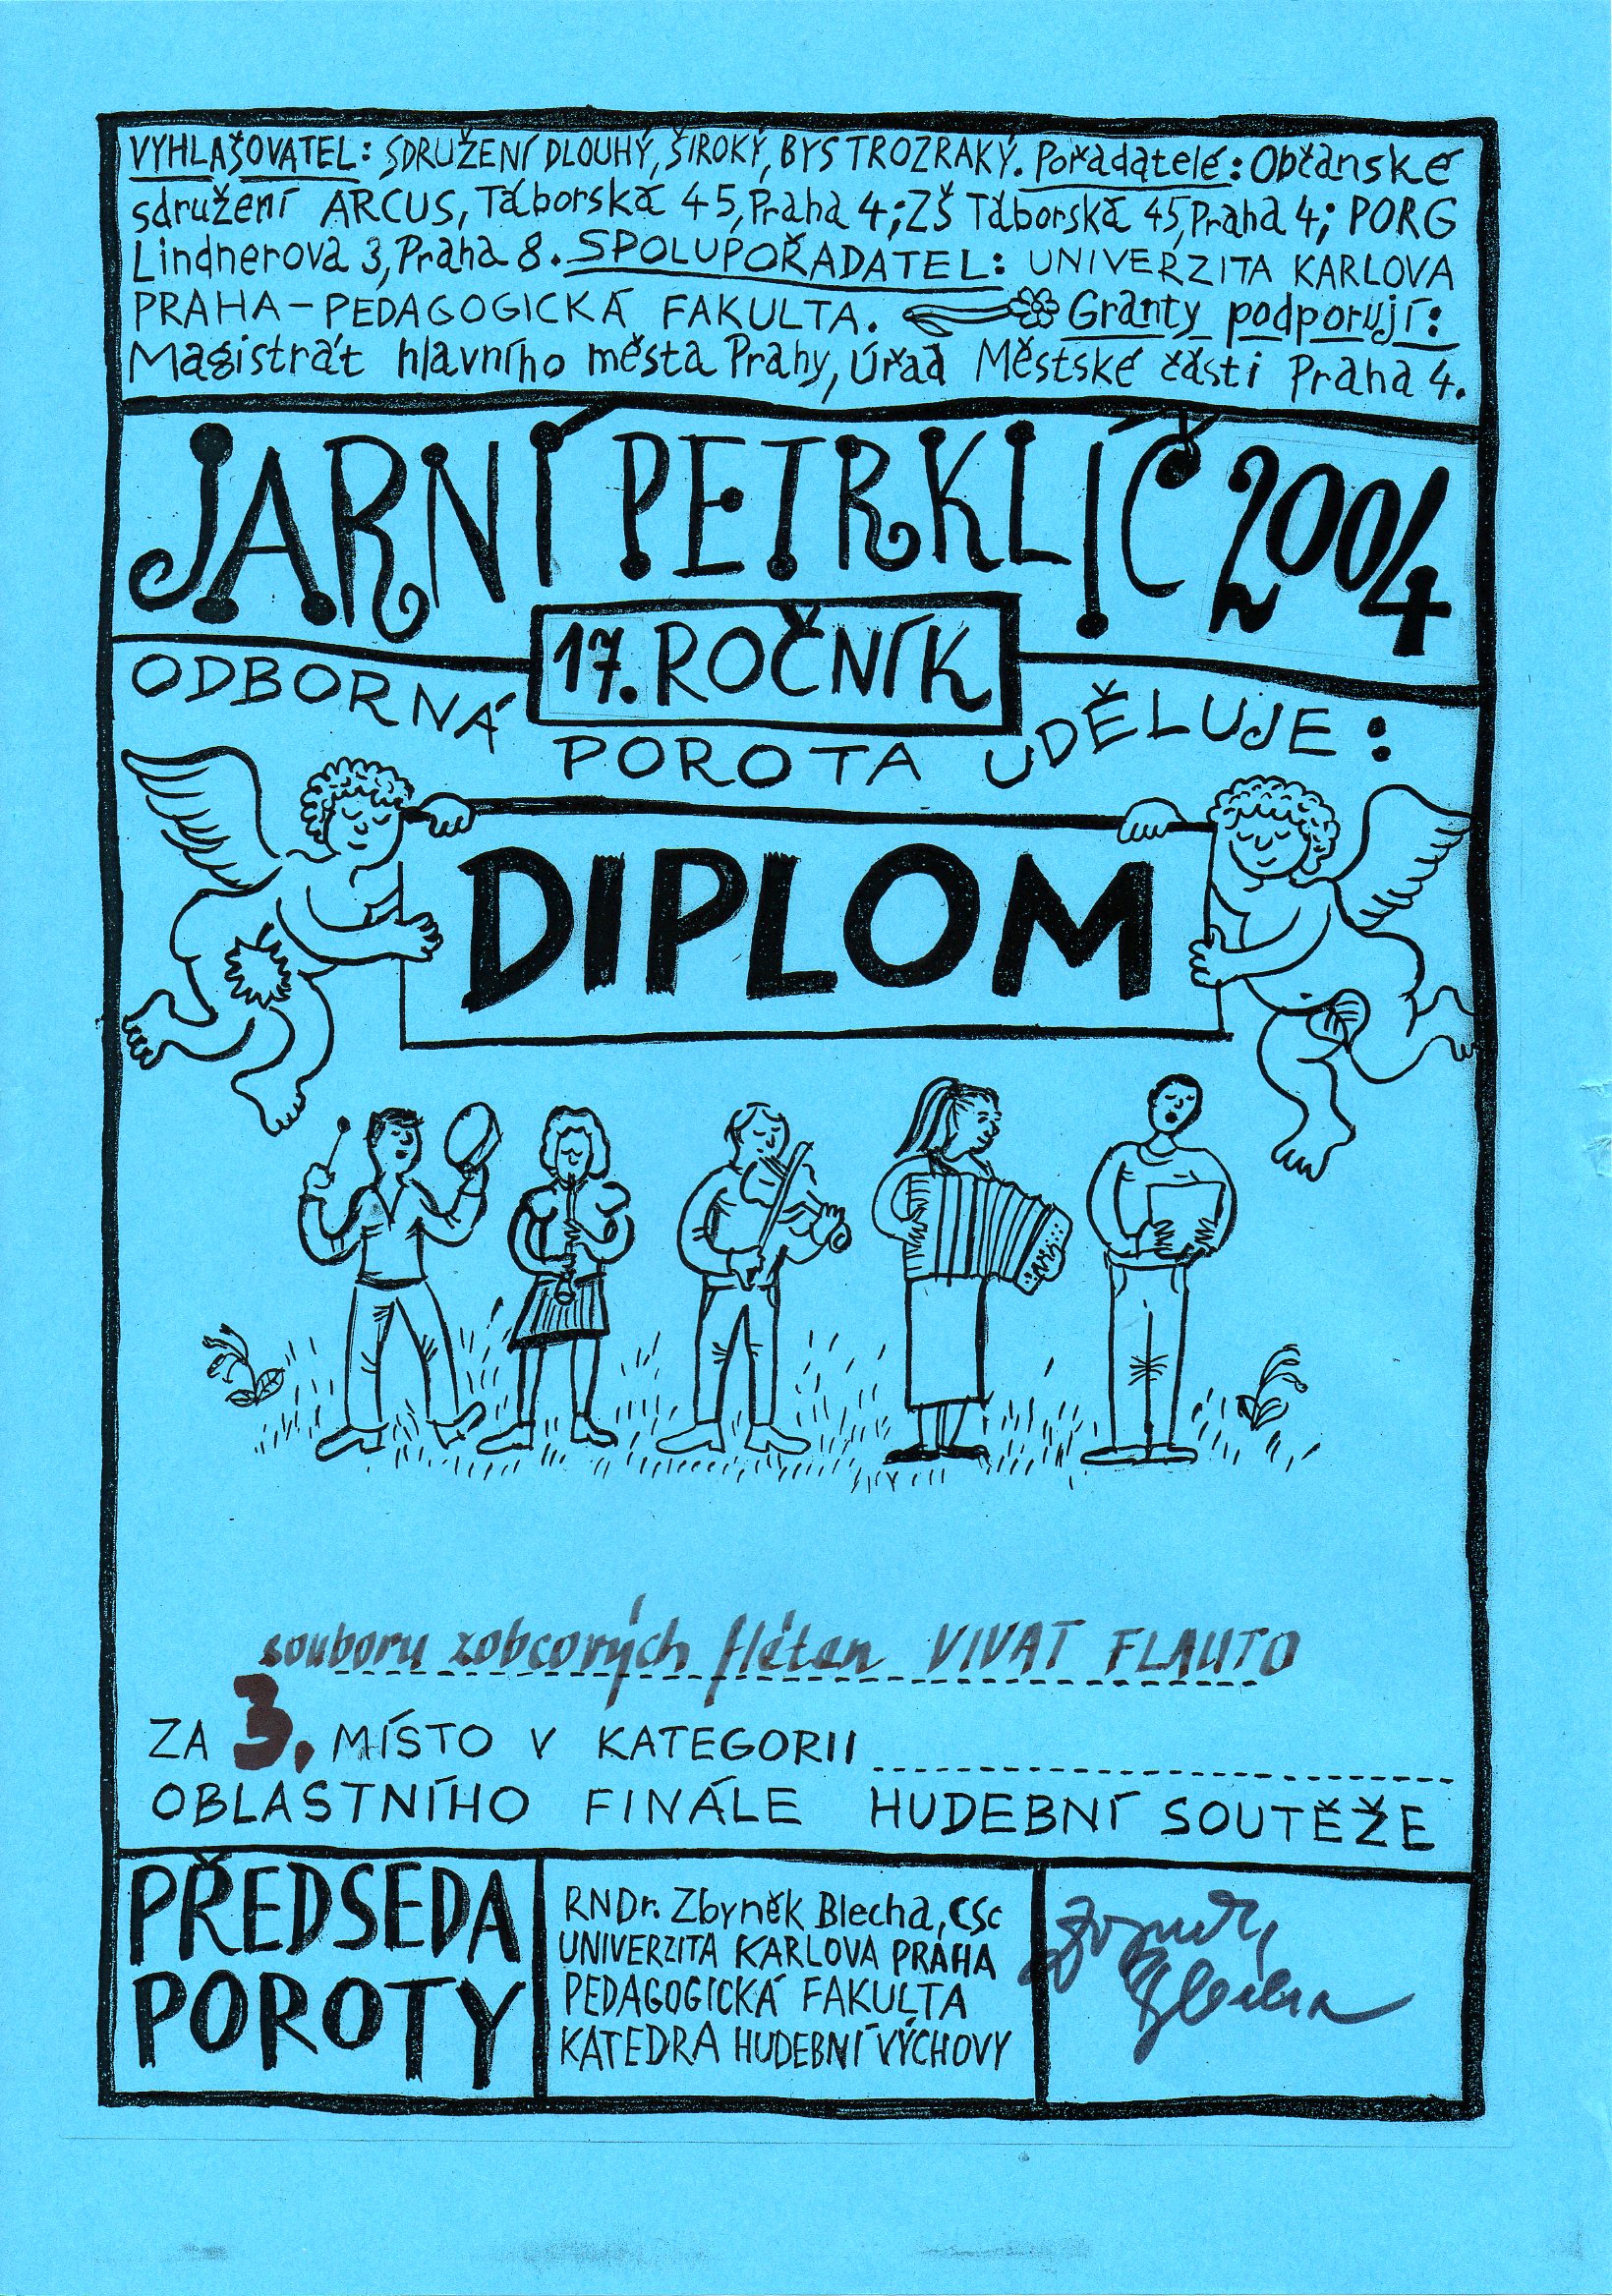 VYHLAŠOVATEL: SDRUŽENÍ DLOUHÝ, ŠIROKÝ, BYSTROZRAKÝ. Pořadatelé: Občanské
sdružení ARCUS, Táborská 45, Praha 4; ZŠ Táborská 45, Praha 4; PORG
Lindnerova 3, Praha 8. SPOLUPOŘADATEL: UNIVERZITA KARLOVA
PRAHA – PEDAGOGICKÁ FAKULTA. Granty podporují:
Magistrát hlavního města Prahy, Úřad Městské části Praha 4.
JARNÍ PETRKLÍČ 2004
17. ROČNÍK
ODBORNÁ POROTA UDĚLUJE:
DIPLOM
souboru zobcových fléten VIVAT FLAUTO
ZA 3. MÍSTO V KATEGORII
OBLASTNÍHO FINÁLE HUDEBNÍ SOUTĚŽE
PŘEDSEDA
POROTY
RNDr. Zbyněk Blecha, CSc
UNIVERZITA KARLOVA PRAHA
PEDAGOGICKÁ FAKULTA
KATEDRA HUDEBNÍ VÝCHOVY